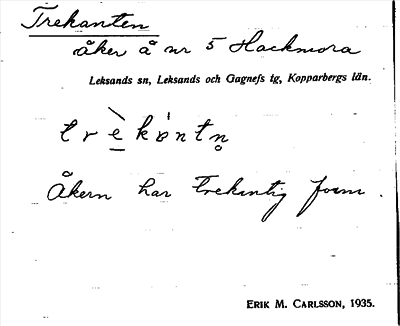 Trekanten
åker å nr 5 Hackmora
Leksands sn, Leksands och Gagnefs tg, Kopparbergs län.
t r è̱ k ɒ́ n t n̥
Åkern har trekantig form.
ERIK M. CARLSSON, 1935.